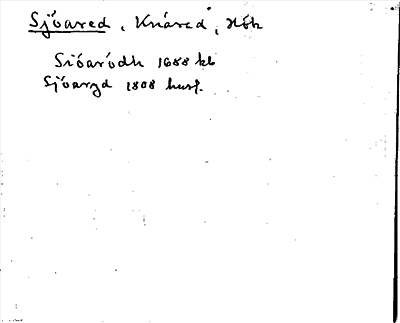 Sjöared, Knäred, Hök
Siöarödh 1688 kb
Sjöaryd 1808 husf.